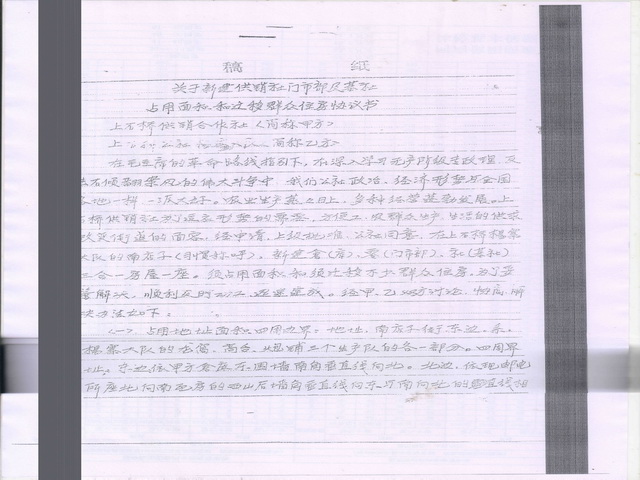 稿 纸
关于新建供销社门市部及基社
占用面积和迁移群众住房协议书
上石桥供销合作社(简称甲方)
简称乙方)
在毛主席的革命路线指引下,在深入学习无产阶级专政理
右倾翻案风的伟大斗争中,我们公社政治、经济形势与全国
各地一样,一派大好。农业生产蒸蒸日上,多种经营蓬勃发展。上
石桥供销社为了适应形势的需要,方便工农群众生产生活的供求
改变街道的面容,经申请,上级批准,公社同意,在上石桥
大队的南店子(习惯称呼),新建仓(库)、零(门市部)、社(基社)
三合一房屋一座。须占用面积和须迁移不少群众住房,为了妥
善解决,顺利及时动工,迅速建成。经甲、乙双方讨论,
决办法如下。
(一)、占用地址面积,四周边界:地址,南店子街东边,系
大队的 三个生产队的各一部分。四周界
址,东边依甲方仓库东围墙南角垂直线向北。北边,依现邮电
所座北向南 房的西山后墙角垂直线向东